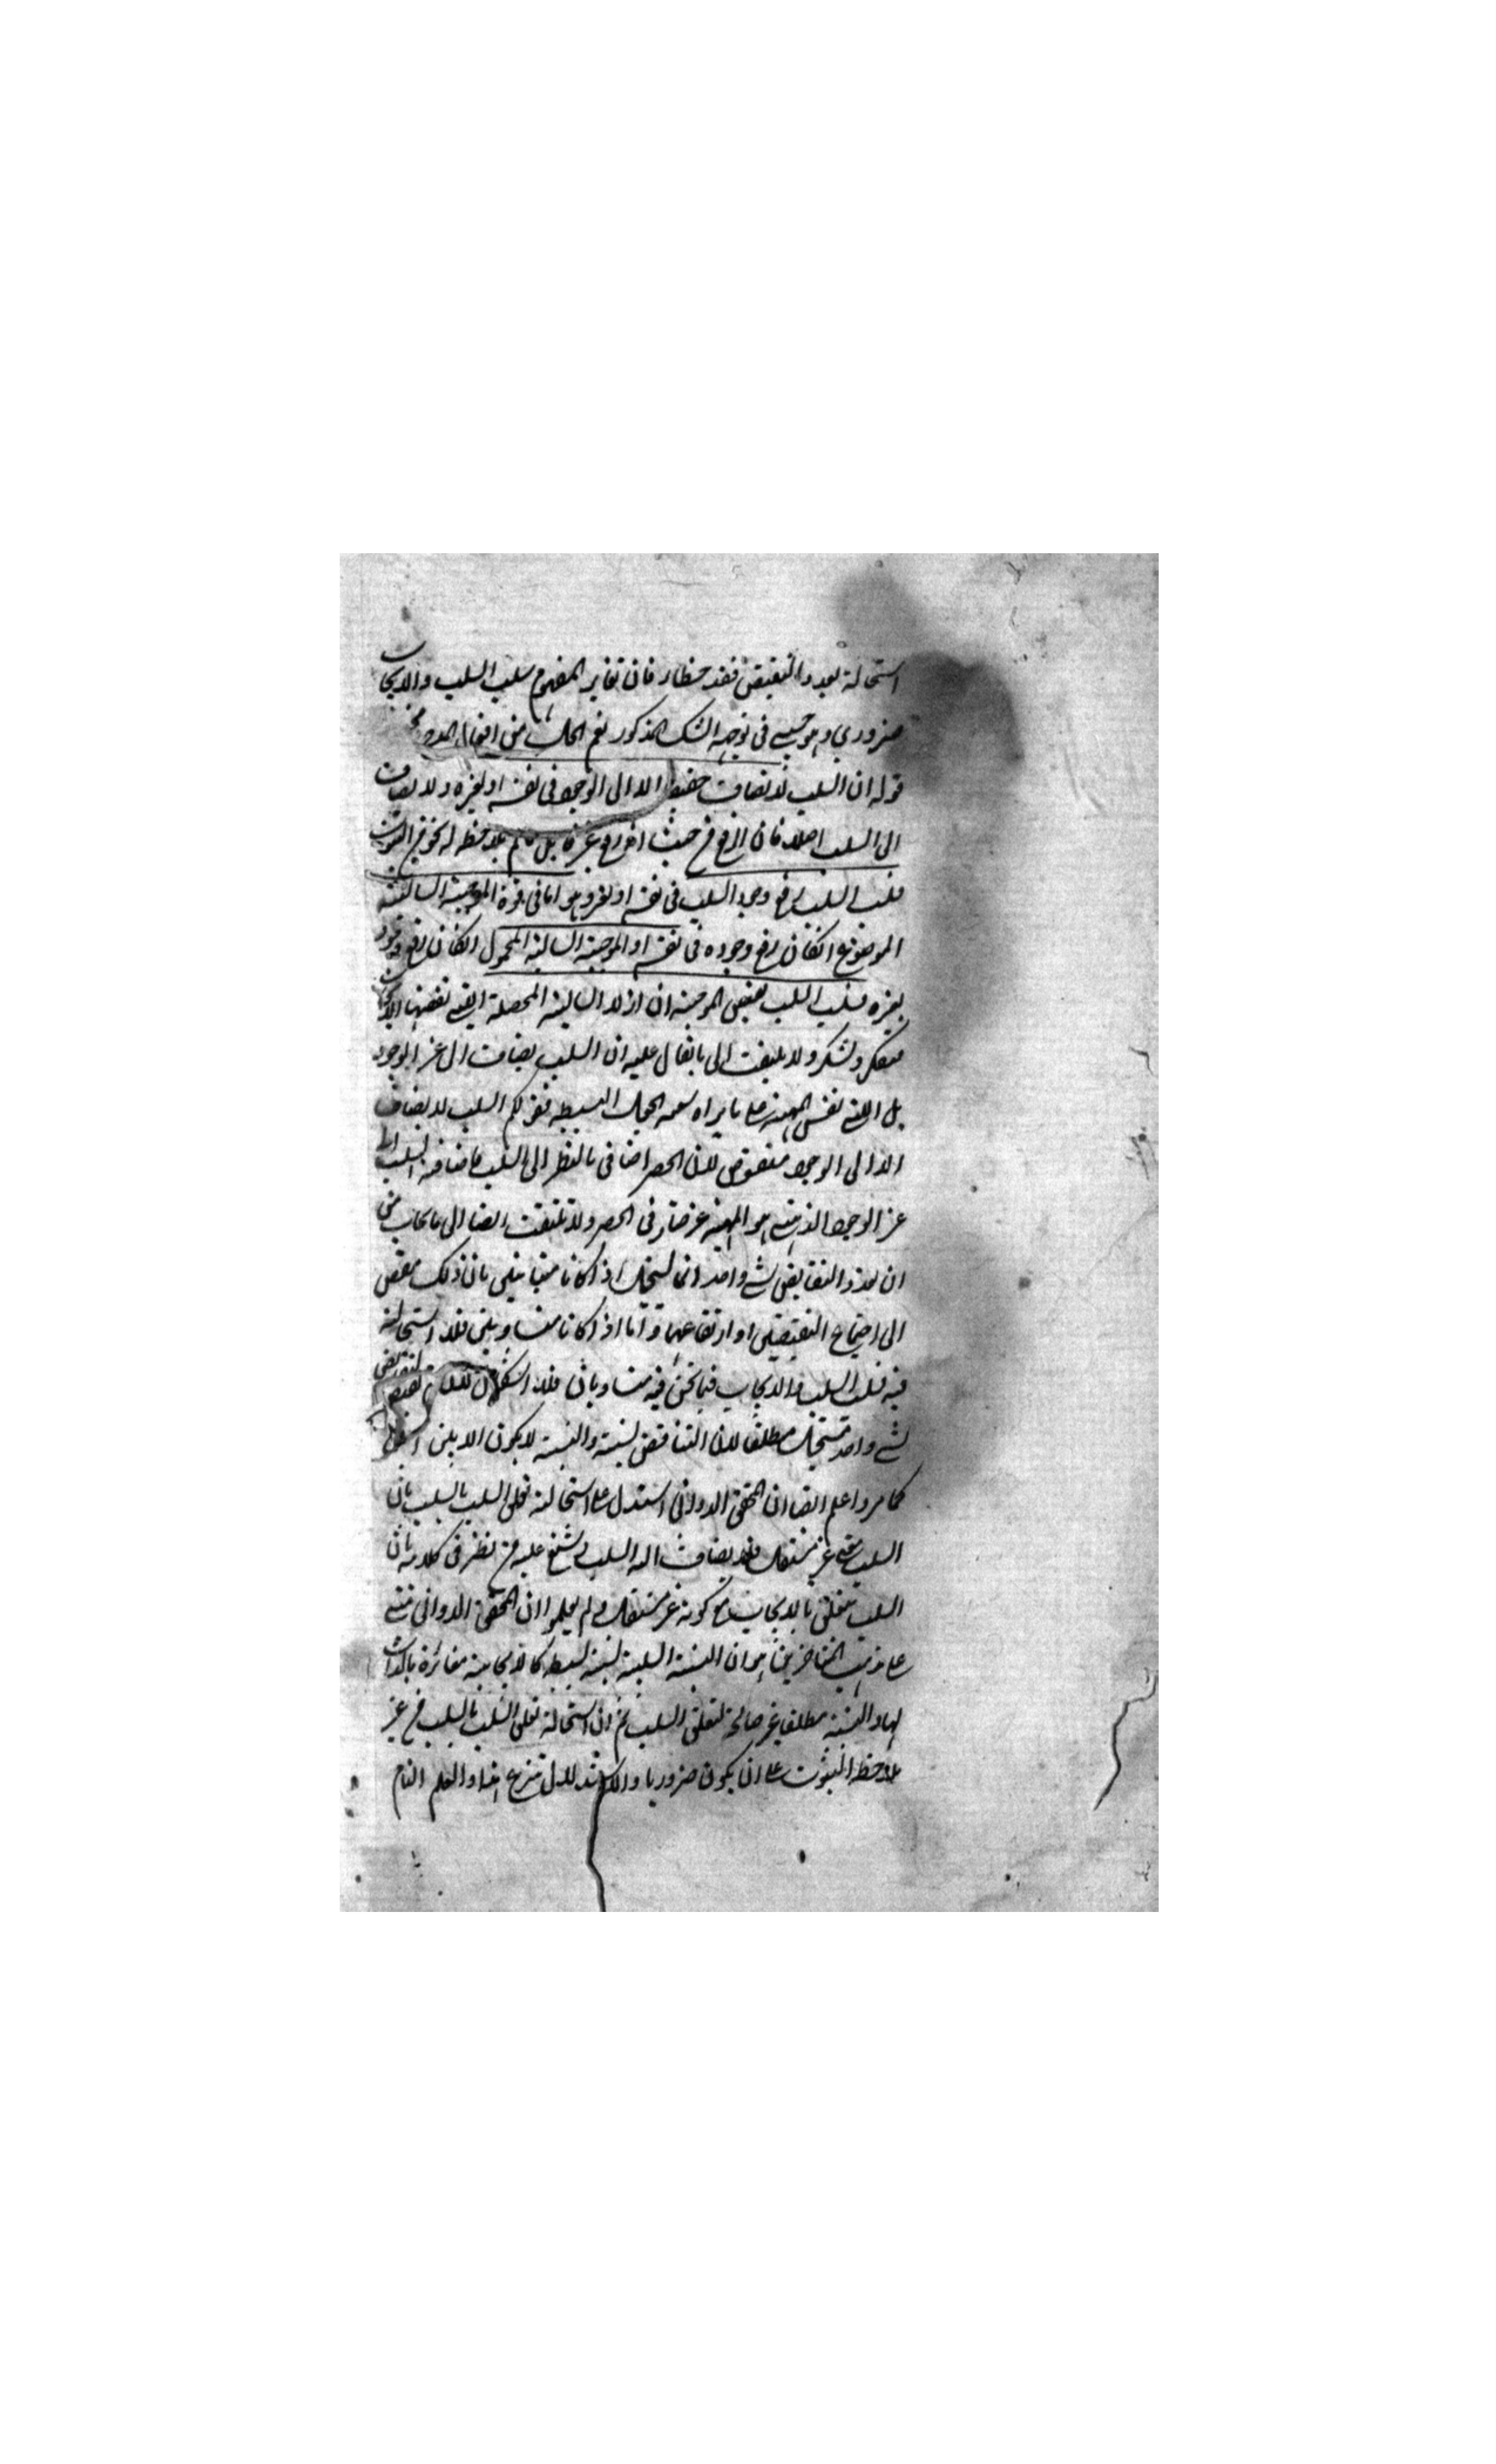 استحالة تعدد النقيض فقد خطار فان تغاير المفهوم سلب السلب والايجاب
ضروري وهو حسبي في توجيه الشك المذكور نعم الجواب من
قوله ان السلب لا يضاف حقيقة الا الى الوجود في نفسه او لغيره ولا يضاف
الى السلب اصلا فان الرفع من حيث انه رفع غير قابل ما لم يلاحظ له نحو من الثبوت
فسلب السلب رفع وجود السلب في نفسه او لغيره وهو اما في قوة الموجبة السالبة
الموضوع انكان رفع وجوده في نفسه او الموجبة السالبة المحمول انكان رفع وجوده
لغيره فسلب السلب نقيض الموجبة لا السالبة المحصلة التي نقيضها الايجاب
فتفكر وتشكر ولا يلتفت الى ما يقال عليه ان السلب يضاف الى غير الوجود
بل الى نفس المهية على ما يراه الجعل البسيط فقولكم السلب لا يضاف
الا الى الوجود منقوض لان الحصر اضافي بالنظر الى السلب فاضافة السلب الى
غير الوجود الذي هو المهية غير ضار في الحصر ولا تلتفت ايضا الى ما يجاب من
ان تعدد النقايض لشئ واحد انما يستحيل اذا كانا متباينين فان ذلك مفض
الى اجتماع النقيضين او ارتفاعهما واما اذا كانا متساويين فلا استحالة
فيه فسلب السلب والايجاب فيما نحن فيه متساويان فلا اشكال لان
لشئ واحد مستحيل مطلقا لان التناقض نسبة والنسبة لا يكون الا بين اثنين
كما مر واعلم ايضا ان المحقق الدواني استدل على استحالة تعلق السلب بالسلب بان
السلب معنى غير مستقل فلا يضاف اليه السلب وشنع عليه من نظر في كلامه بان
السلب يتعلق بالايجاب مع كونه غير مستقل ولم يعلموا ان المحقق الدواني
على مذهب المتاخرين هو ان النسبة السلبية نسبة بسيطة كالايجابية مغائرة بالذات
لها والنسبة مطلقا غير صالحة لتعلق السلب ثم ان استحالة تعلق السلب بالسلب من غير
ملاحظة الثبوت على ان يكون ضروريا والعلم التام